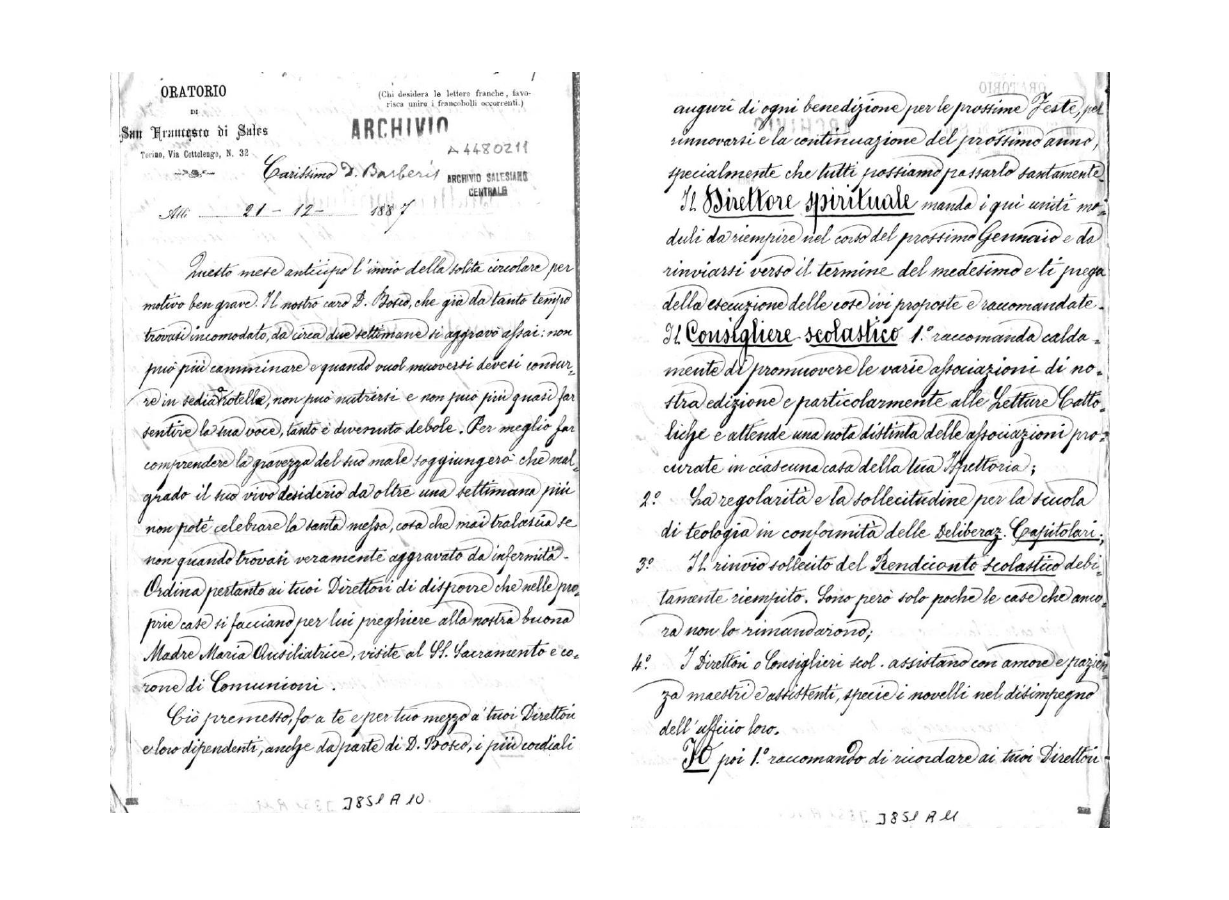 ORATORIO
DI
San Francesco di Sales
Torino, Via Cottolengo, N. 32
(Chi desidera le lettere franche, favo-
risca unire i francobolli occorrenti.)
ARCHIVIO
A4480211
ARCHIVIO SALESIANO
CENTRALE
Carissimo D. Barberis
Alli 21 - 12 - 1887
Questo mese anticipo l'invio della solita circolare per
motivo ben grave. Il nostro caro D. Bosco, che già da tanto tempo
trovasi incomodato, da circa due settimane si aggravò assai: non
può più camminare e quando vuol muoversi devesi condur-
re in sedia a rotelle, non può nutrirsi e non può più quasi far
sentire la sua voce, tanto è divenuto debole. Per meglio far
comprendere la gravezza del suo male soggiungerò che mal-
grado il suo vivo desiderio da oltre una settimana più
non poté celebrare la santa messa, cosa che mai tralascia se
non quando trovasi veramente aggravato da infermità.
Ordina pertanto ai tuoi Direttori di disporre che nelle pro-
prie case si facciano per lui preghiere alla nostra buona
Madre Maria Ausiliatrice, visite al SS. Sacramento e co-
rone di Comunioni.
Ciò premesso, fo a te e per tuo mezzo a' tuoi Direttori
e loro dipendenti, anche da parte di D. Bosco, i più cordiali
3851 A 10
auguri di ogni benedizione per le prossime Feste, pel
rinnovarsi e la continuazione del prossimo anno,
specialmente che tutti possiamo passarlo santamente
Il Direttore spirituale manda i qui uniti mo-
duli da riempire nel corso del prossimo Gennaio e da
rinviarsi verso il termine del medesimo e ti prega
della esecuzione delle cose ivi proposte e raccomandate.
Il Consigliere scolastico 1.° raccomanda calda-
mente di promuovere le varie associazioni di no-
stra edizione e particolarmente alle Letture Catto-
liche e attende una nota distinta delle associazioni pro-
curate in ciascuna casa della tua Ispettoria;
2.° La regolarità e la sollecitudine per la scuola
di teologia in conformità delle Deliberaz. Capitolari;
3.° Il rinvio sollecito del Rendiconto scolastico debi-
tamente riempito. Sono però solo poche le case che anco-
ra non lo rimandarono;
4.° I Direttori o Consiglieri scol. assistano con amore e pazien-
za maestri e assistenti, specie i novelli nel disimpegno
dell'ufficio loro.
Io poi 1.° raccomando di ricordare ai tuoi Direttori
3851 A 11